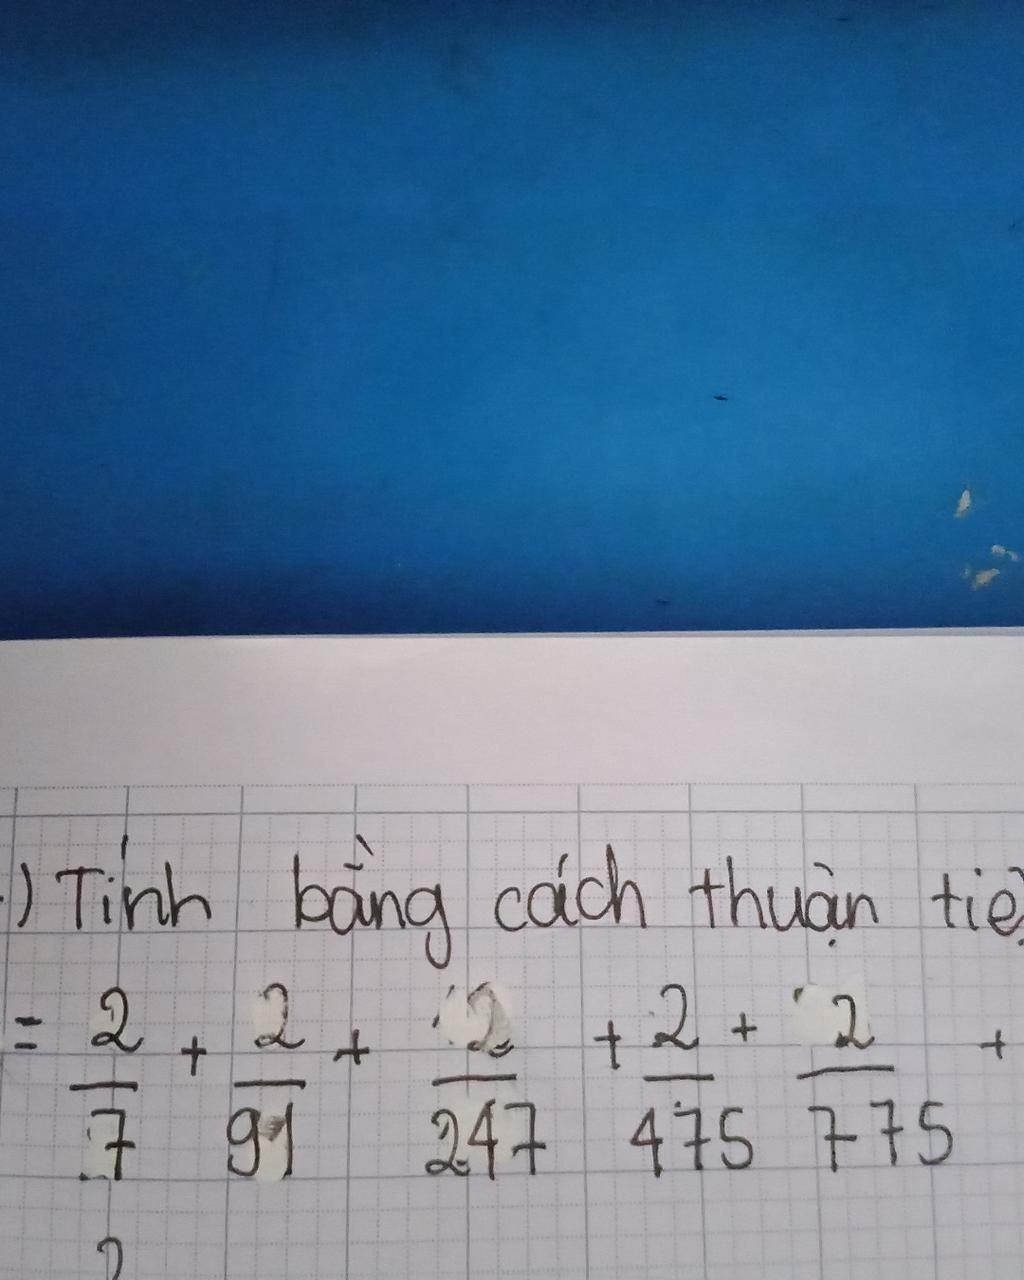 ) Tính bằng cách thuận tiệ
= 2/7 + 2/91 + 2/247 + 2/475 + 2/775 +
2